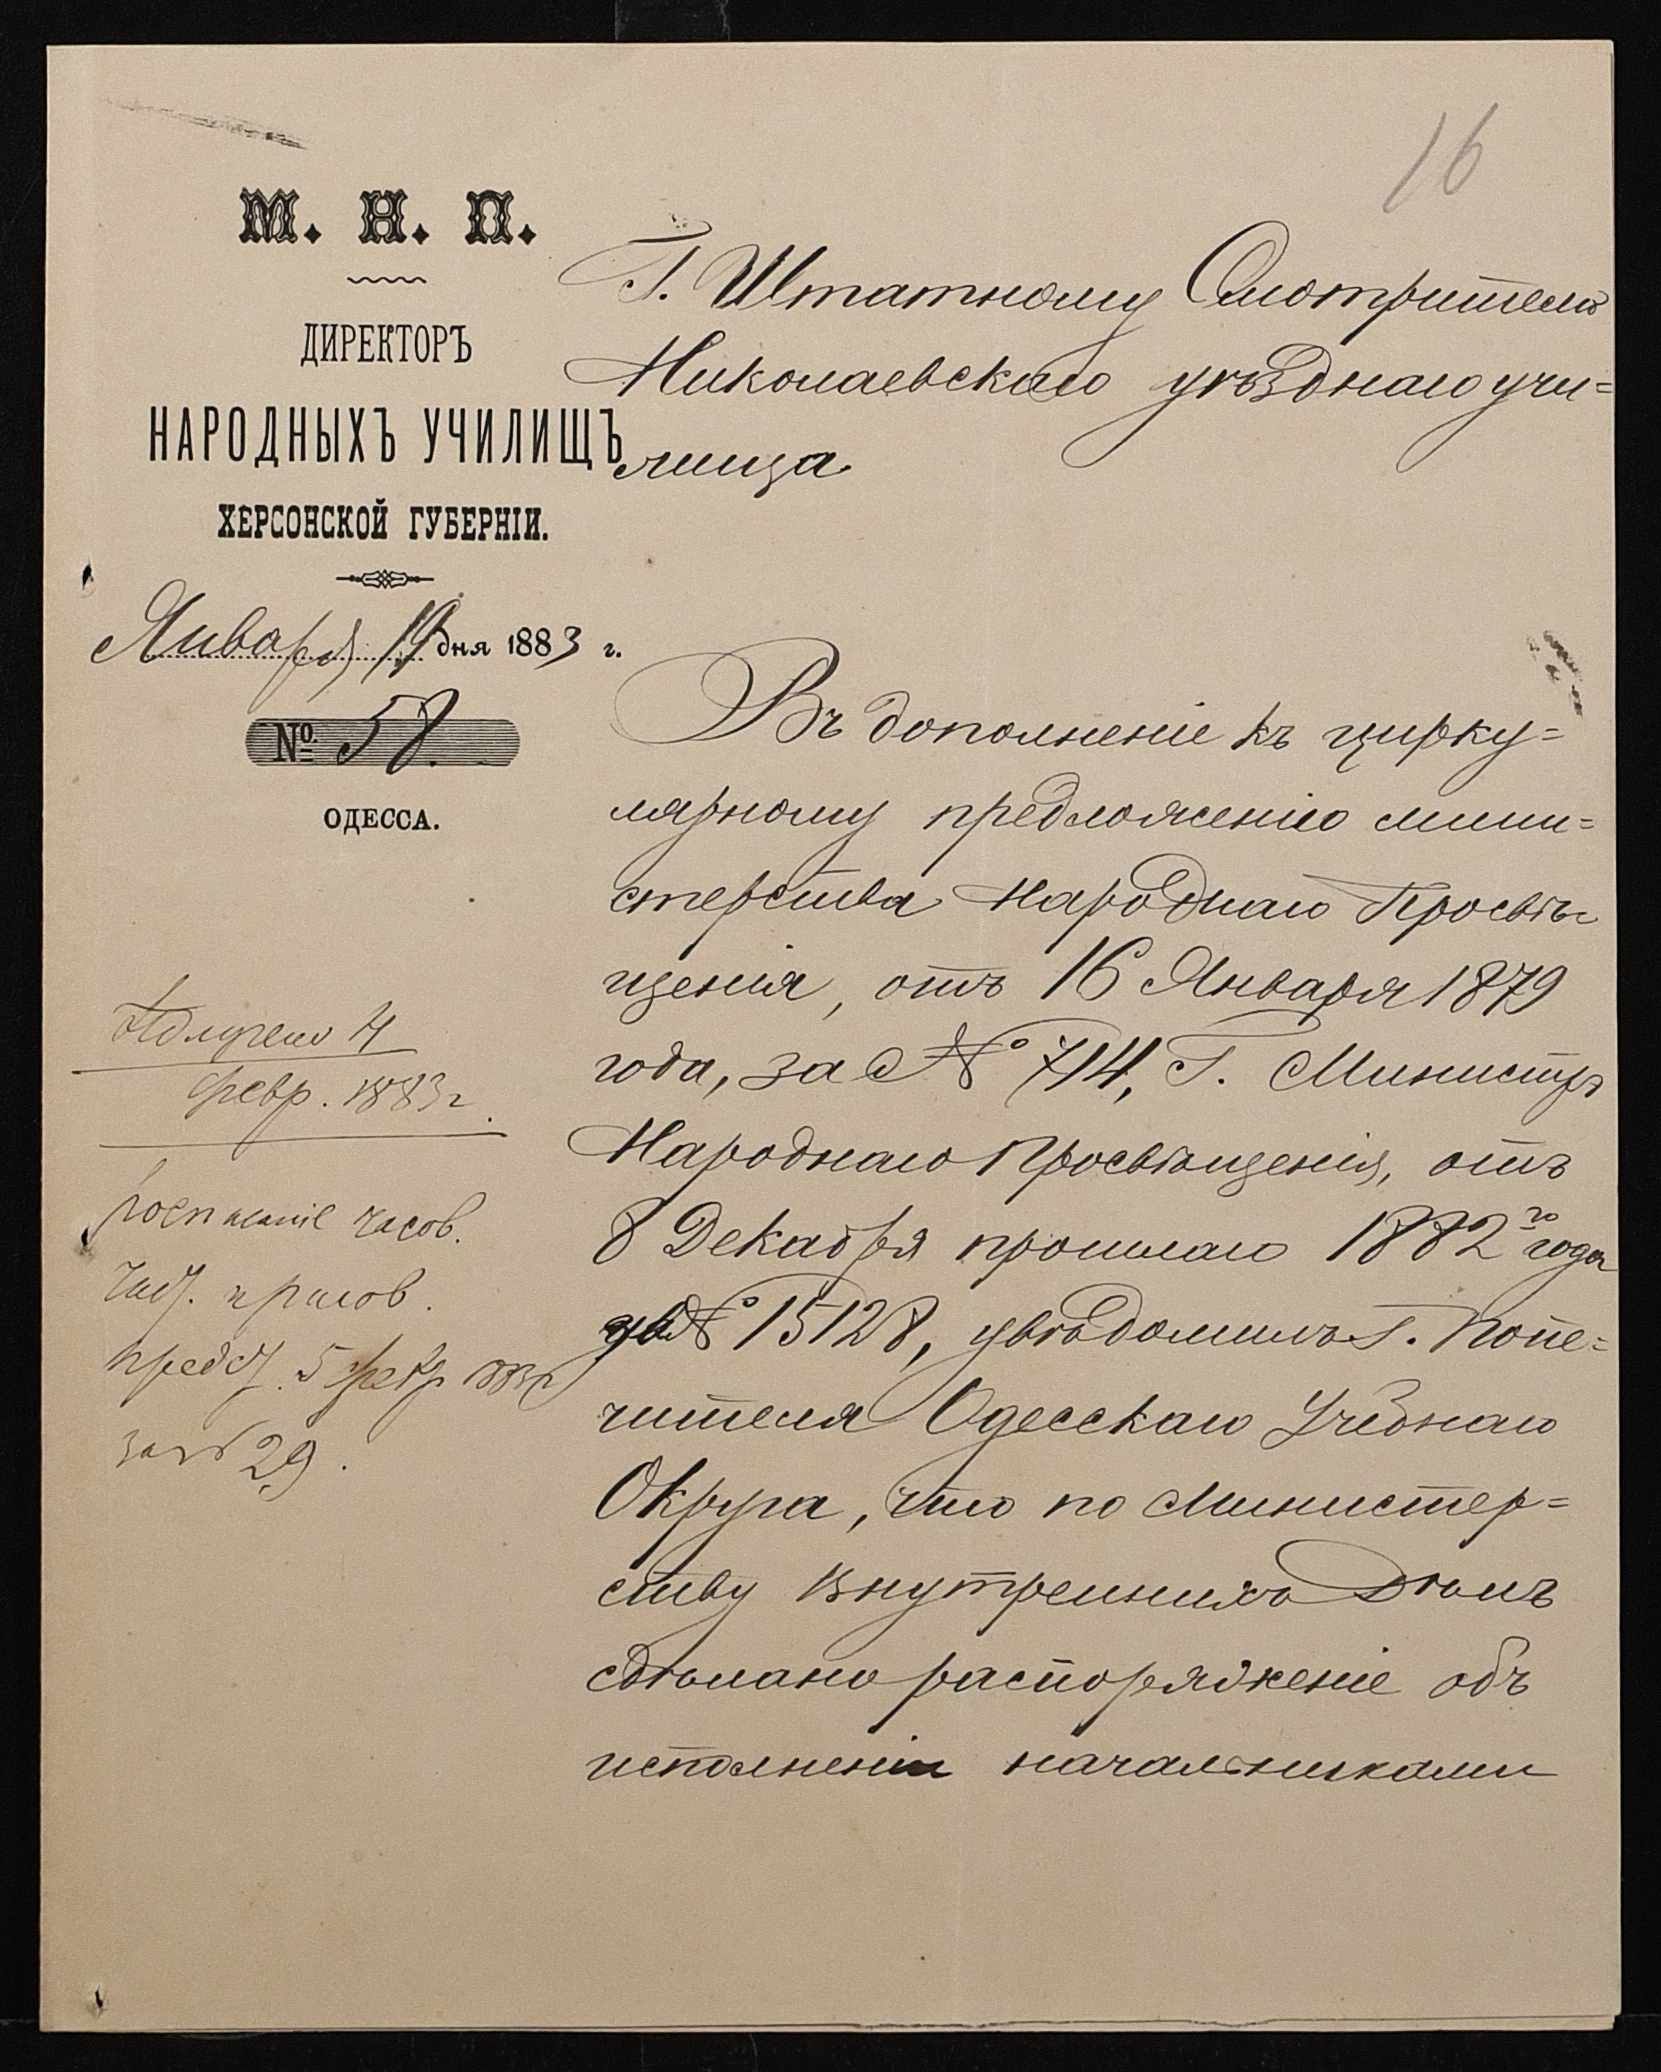 16
М. Н. П.
ДИРЕКТОРЪ
НАРОДНЫХЪ УЧИЛИЩЪ
ХЕРСОНСКОЙ ГУБЕРНІИ.
Января 19 дня 1883 г.
№ 58.
ОДЕССА.
Получено 4
февр. 1883 г.
росписаніе часов.
предст. 5 февр 1883 г
за № 29.
Г. Штатному Смотрителю
Николаевскаго уѣзднаго учи=
лища
Въ дополненіе къ цирку=
лярному предложенію мини=
стерства Народнаго Просвѣ=
щенія, отъ 16 Января 1879
года, за № 714, Г. Министръ
Народнаго Просвѣщенія, отъ
8 Декабря прошлаго 1882 го года
за № 15128, увѣдомилъ Г. Попе=
чителя Одесскаго Учебнаго
Округа, что по Министер=
ству Внутреннихъ Дѣлъ
сдѣлано распоряженіе объ
исполненіи начальниками